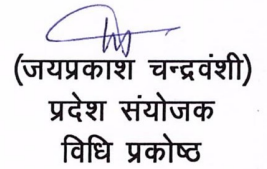 (जयप्रकाश चन्द्रवंशी)
प्रदेश संयोजक
विधि प्रकोष्ठ